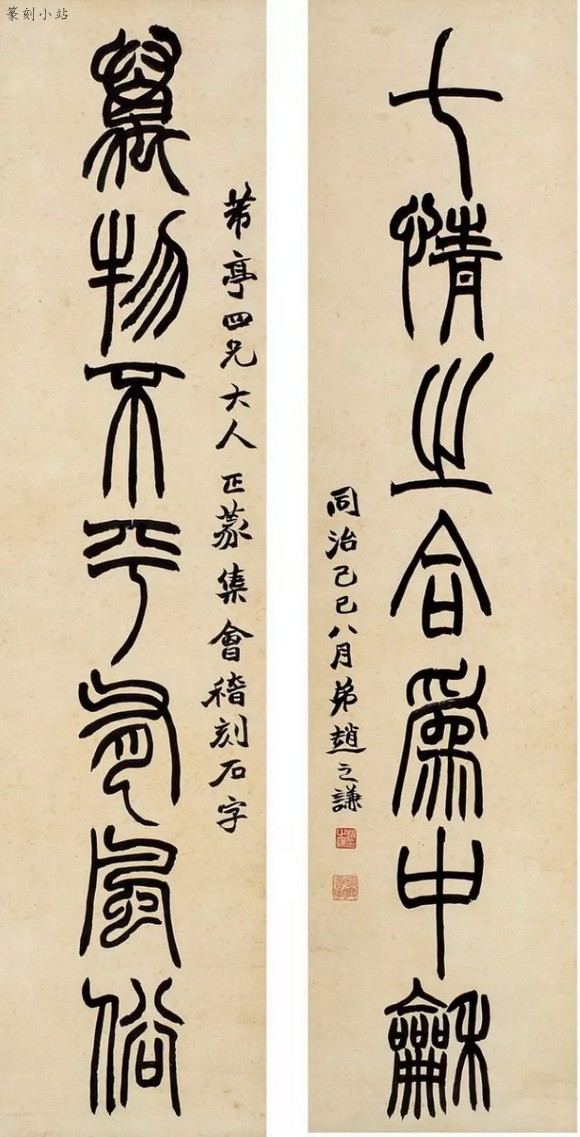 篆刻小站
七情之合爲中龢
同治己巳八月弟趙之謙
芾亭四兄大人正篆集會稽刻石字
萬物不平風俗